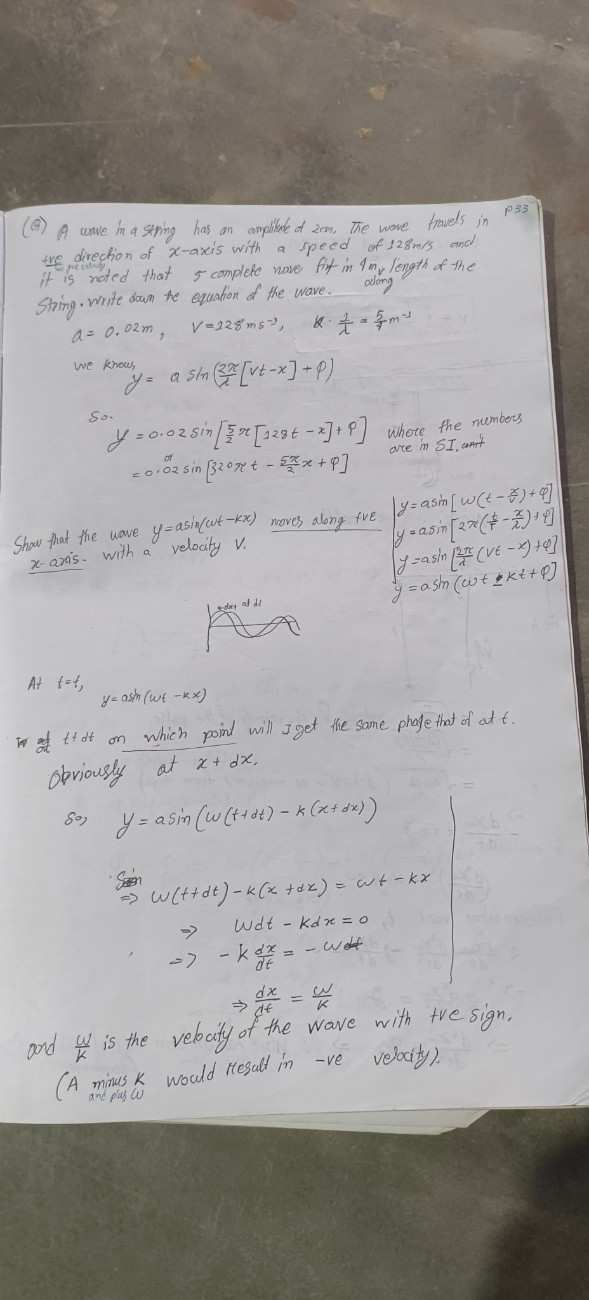 P33
(Q) A wave in a string has an amplitude of 2cm. The wave travels in
+ve direction of x-axis with a speed of 128m/s and
it is noted that 5 complete wave fit in 4m along length of the
String. Write down the equation of the wave.
a = 0.02m, V = 128ms⁻¹, 1/λ = 5/4 m⁻¹
We know,
y = a sin(2π/λ [vt-x] + φ)
So.
y = 0.02 sin[5/2 π [128t - x] + φ] where the numbers
are in SI.
or
= 0.02 sin [320πt - 5π/2 x + φ]
y = asin[ω(t - x/v)+φ]
y = asin[2π(t/T - x/λ)+φ]
y = asin[2π/λ (vt - x)+φ]
y = asin(ωt - kt+φ]
Show that the wave y = asin(ωt-kx) moves along +ve
x-axis. with a velocity V.
At t=t,
y = asin(ωt - kx)
at t+dt on which point will I get the same phase that of at t.
Obviously at x + dx.
So, y = asin(ω(t+dt) - k(x+dx))
⇒ ω(t+dt) - k(x+dx) = ωt - kx
⇒ ωdt - kdx = 0
⇒ -k dx/dt = -ω
⇒ dx/dt = ω/k
and ω/k is the velocity of the wave with +ve sign.
(A minus k and plus ω would result in -ve velocity).